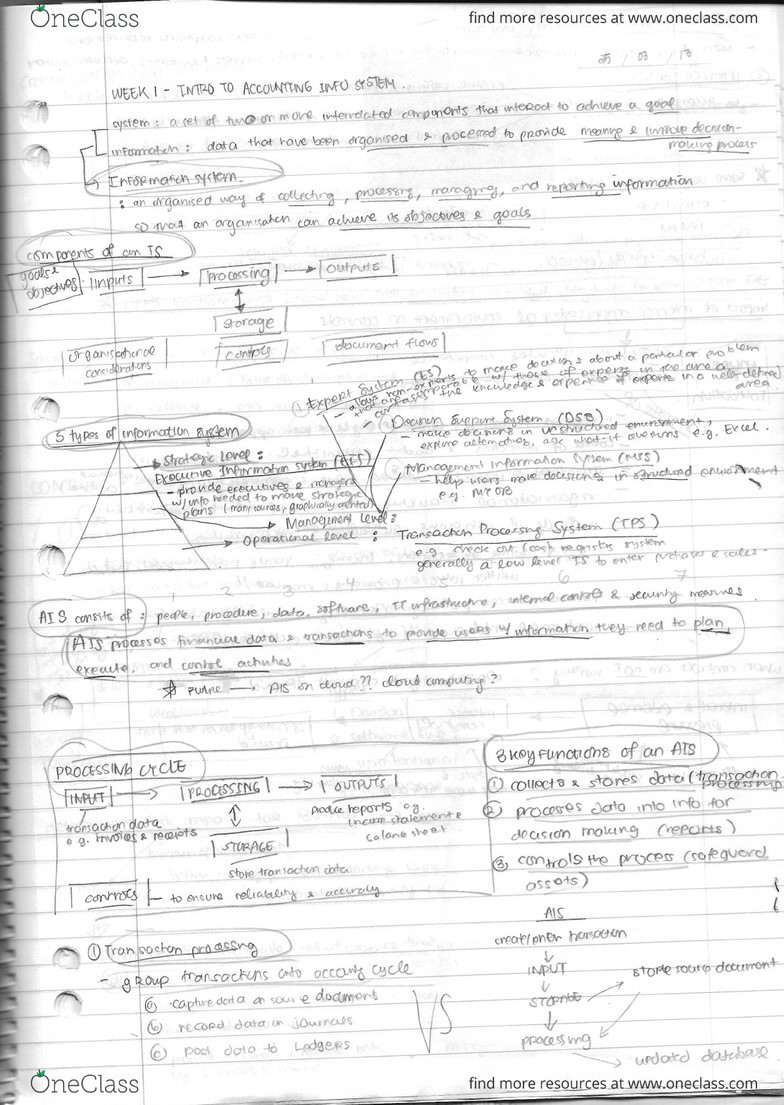 OneClass
find more resources at www.oneclass.com
25 / 03 / 13
WEEK 1 - INTRO TO ACCOUNTING INFO SYSTEM.
system: a set of two or more interrelated components that interact to achieve a goal
information: data that have been organised & processed to provide meaning & improve decision-
making process
Information system.
: an organised way of collecting, processing, managing, and reporting information
so that an organisation can achieve its objectives & goals
components of an IS
goals & objectives
inputs → processing → outputs
storage
organisational considerations
controls
document flows
① Expert System (ES)
- allows non-experts to make decisions about a particular problem
that are comparable w/ those of experts in the area
the knowledge & experience of experts in a well-defined
area
Decision Support System (DSS)
- make decisions in unstructured environment,
explore alternatives, ask what-if questions e.g. Excel.
3 types of information system
→ Strategic level:
Executive Information System (EIS)
- provide executives & managers
w/ info needed to make strategic
plans (many sources, graphically oriented)
Management Information System (MIS)
- help users make decisions in structured environment
e.g. MYOB
→ Management level:
→ Operational level : Transaction Processing System (TPS)
e.g. check out / cash register system
generally a low level IS to enter purchases & sales.
1 2 3 4 5 6 7
AIS consists of: people, procedure, data, software, IT infrastructure, internal control & security measures.
AIS processes financial data & transactions to provide users w/ information they need to plan,
execute, and control activities
☆ future → AIS on cloud?? cloud computing?
PROCESSING CYCLE
INPUT → PROCESSING → OUTPUTS
transaction data
e.g. invoices & receipts
produce reports e.g.
income statement &
balance sheet
STORAGE
store transaction data
controls - to ensure reliability & accuracy
3 key functions of an AIS
① collects & stores data (transaction
processing)
② processes data into info for
decision making (reports)
③ controls the process (safeguard
assets)
① Transaction processing
- group transactions into accounting cycle
ⓐ capture data on source document
ⓑ record data in journals
ⓒ post data to ledgers
VS
AIS
create/enter transaction
↓
INPUT
↓
STORAGE
store source document
↓
processing
→ updated database
OneClass
find more resources at www.oneclass.com